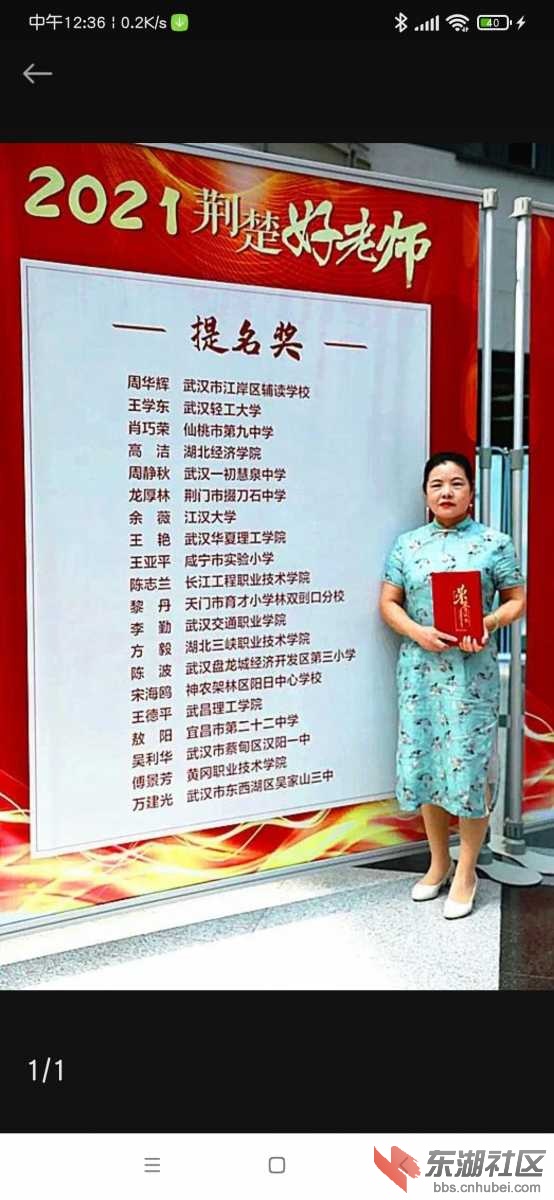 中午12:36 | 0.2K/s
40
2021荆楚好老师
提名奖
周华辉 武汉市江岸区辅读学校
王学东 武汉轻工大学
肖巧荣 仙桃市第九中学
高 洁 湖北经济学院
周静秋 武汉一初慧泉中学
龙厚林 荆门市掇刀石中学
余 薇 江汉大学
王 艳 武汉华夏理工学院
王亚平 咸宁市实验小学
陈志兰 长江工程职业技术学院
黎 丹 天门市育才小学林双剅口分校
李 勤 武汉交通职业学院
方 毅 湖北三峡职业技术学院
陈 波 武汉盘龙城经济开发区第三小学
宋海鸥 神农架林区阳日中心学校
王德平 武昌理工学院
敖 阳 宜昌市第二十二中学
吴利华 武汉市蔡甸区汉阳一中
傅景芳 黄冈职业技术学院
万建光 武汉市东西湖区吴家山三中
1/1
东湖社区
bbs.cnhubei.com